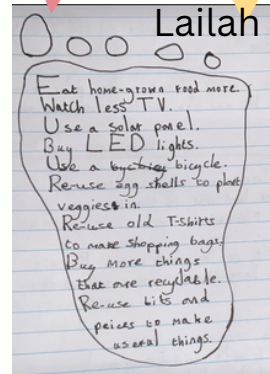 Lailah
Eat home-grown food more.
Watch less TV.
Use a solar panel.
Buy LED lights.
Use a bicycle.
Re-use egg shells to plant
veggies in.
Re-use old T-shirts
to make shopping bags.
Buy more things
that are recyclable.
Re-use bits and
peices to make
useful things.